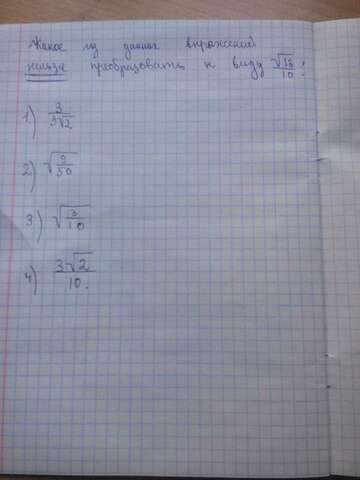 Какое из данных выражений
нельзя преобразовать к виду √18/10:
1) 3/5√2
2) √9/50
3) √3/10
4) 3√2/10.